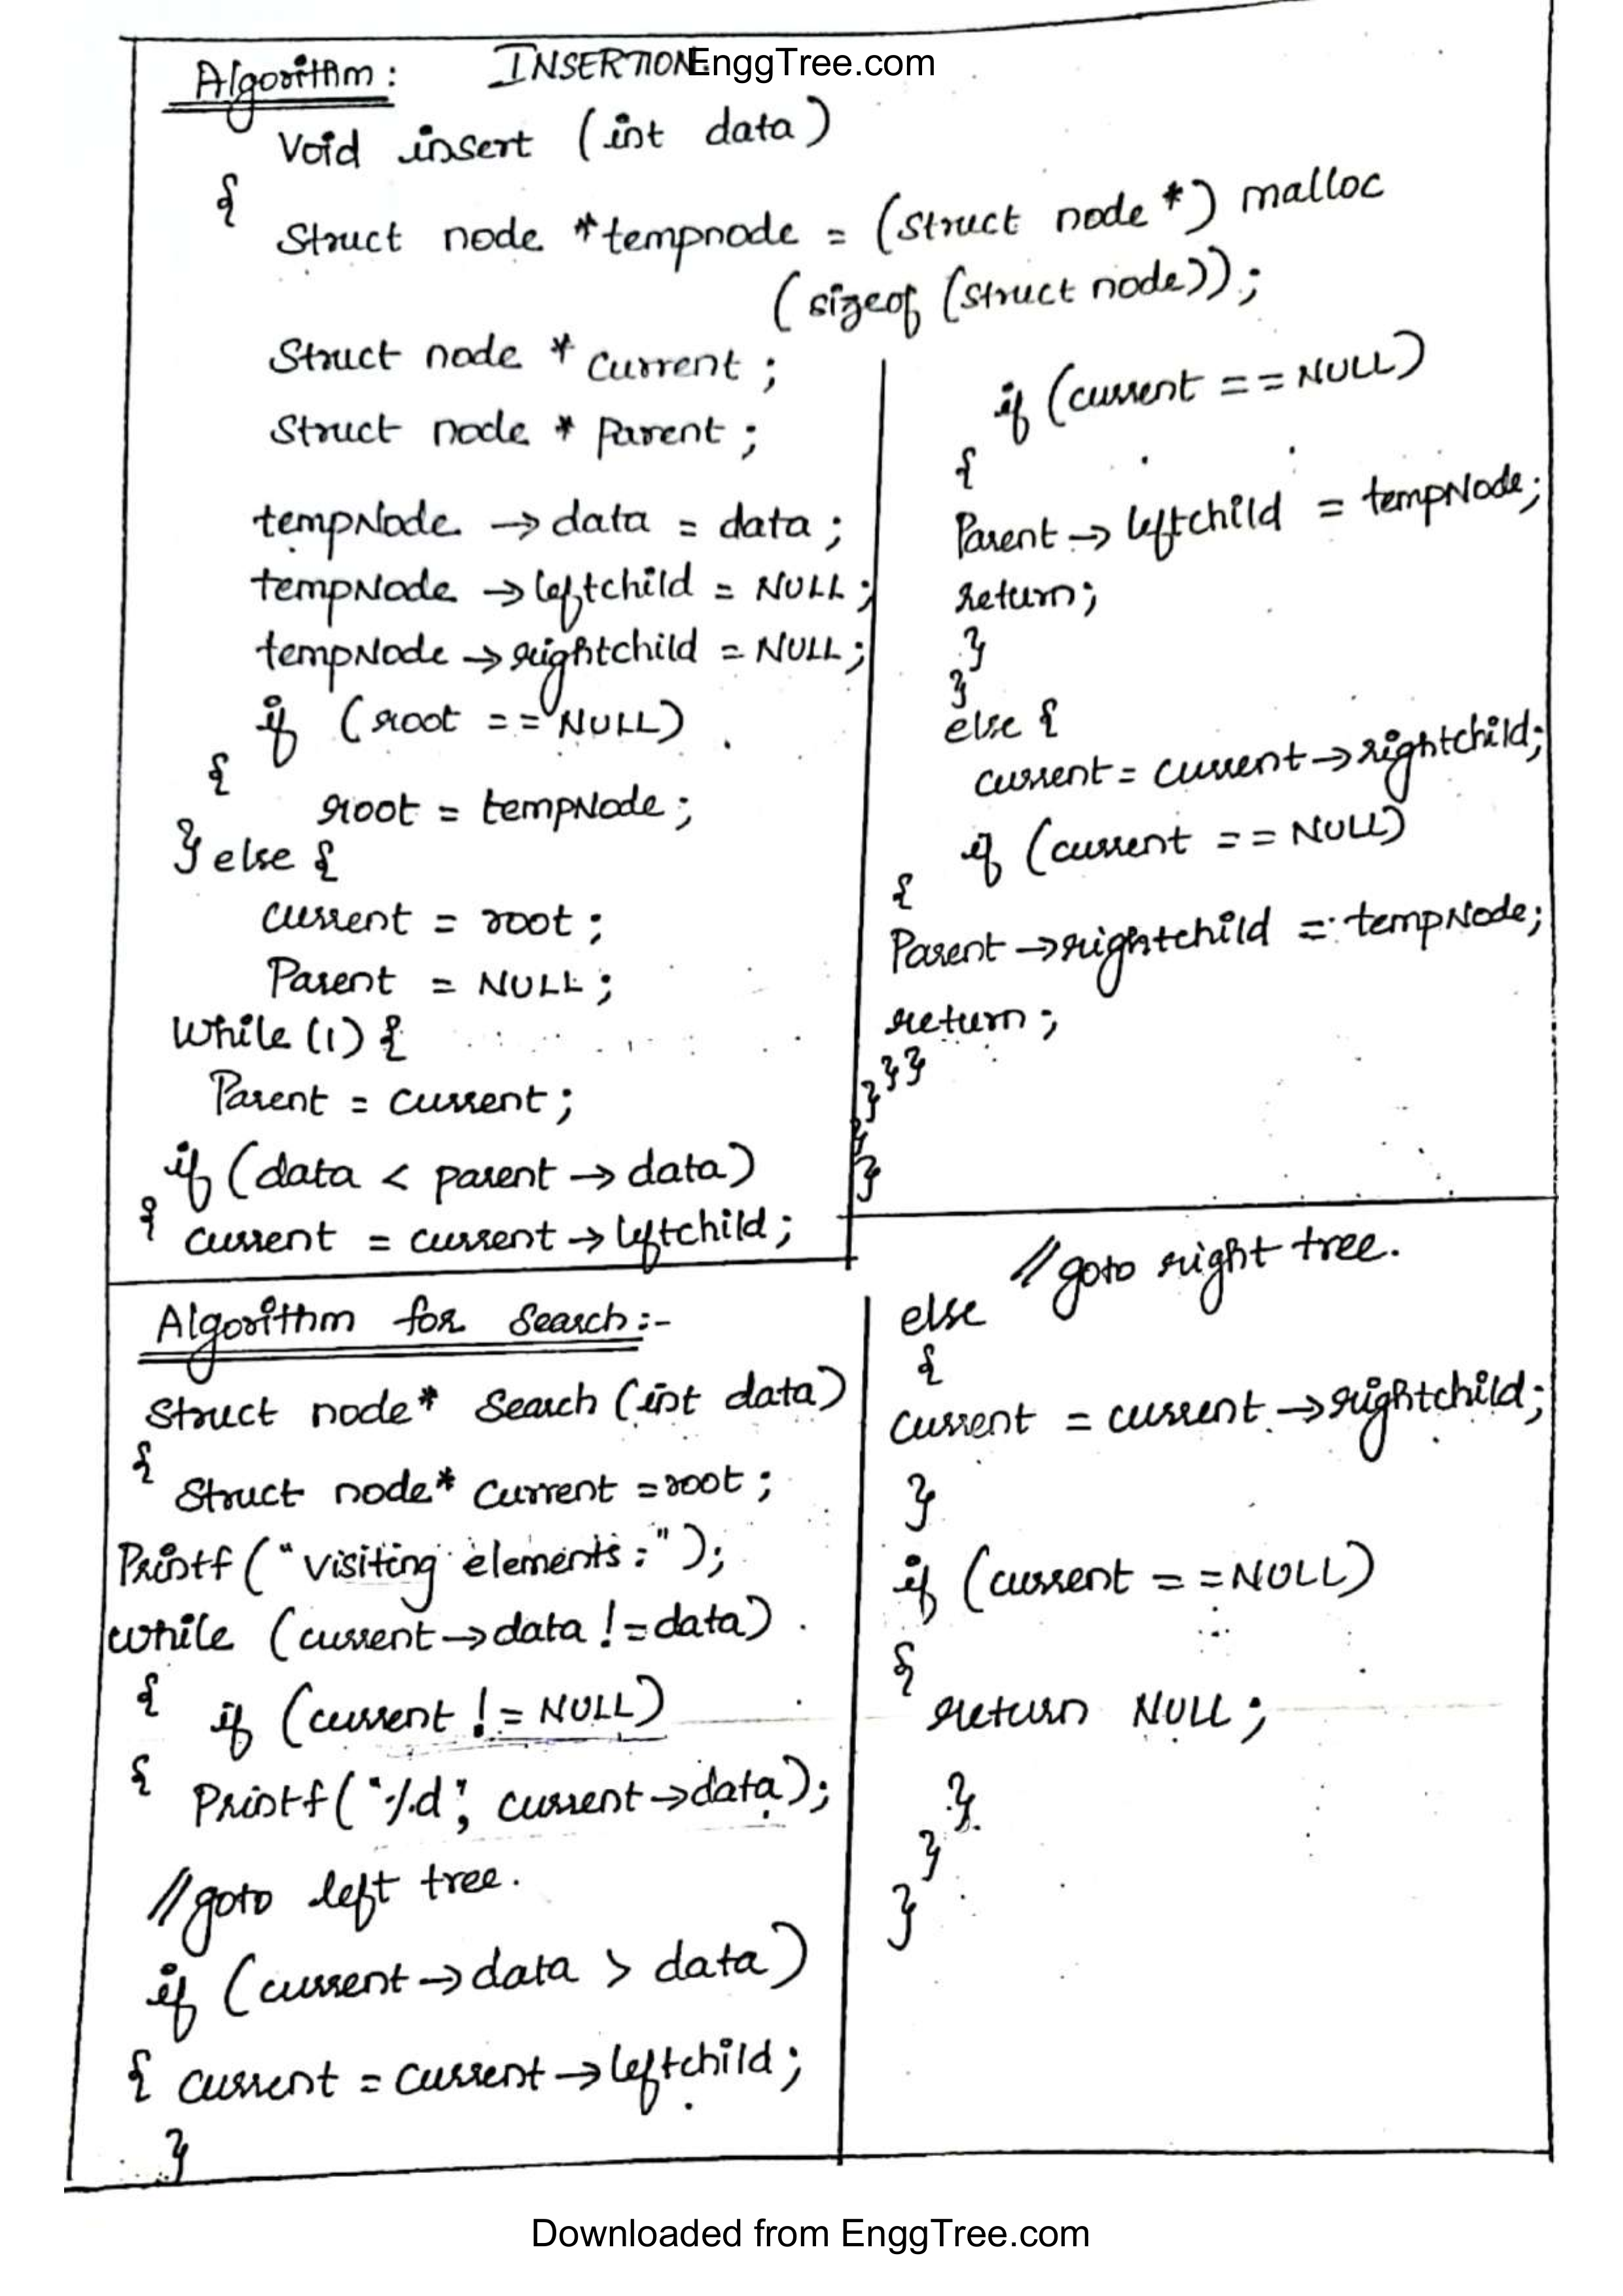 EnggTree.com
Algorithm: INSERTION:
Void insert (int data)
{
Struct node *tempnode = (Struct node *) malloc
(sizeof (struct node));
Struct node * Current ;
Struct node * Parent ;
tempNode → data = data ;
tempNode → leftchild = NULL ;
tempNode → rightchild = NULL ;
if (root == NULL)
{
root = tempNode ;
} else {
current = root ;
Parent = NULL ;
While (1) {
Parent = Current ;
if (data < parent → data)
{ current = current → leftchild ;
if (current == NULL)
{
Parent → leftchild = tempNode;
return;
}
}
else {
current = current → rightchild;
if (current == NULL)
{
Parent → rightchild = tempNode;
return ;
}}
}
}
}
Algorithm for Search:-
Struct node* Search (int data)
{
Struct node* Current = root ;
Printf ("visiting elements:");
while (current → data != data)
{ if (current != NULL)
{ Printf ("%d", current → data);
//goto left tree.
if (current → data > data)
{ current = current → leftchild ;
}
//goto right tree.
else
{
Current = current → rightchild;
}
if (current == NULL)
{
return NULL ;
}
}
}
Downloaded from EnggTree.com